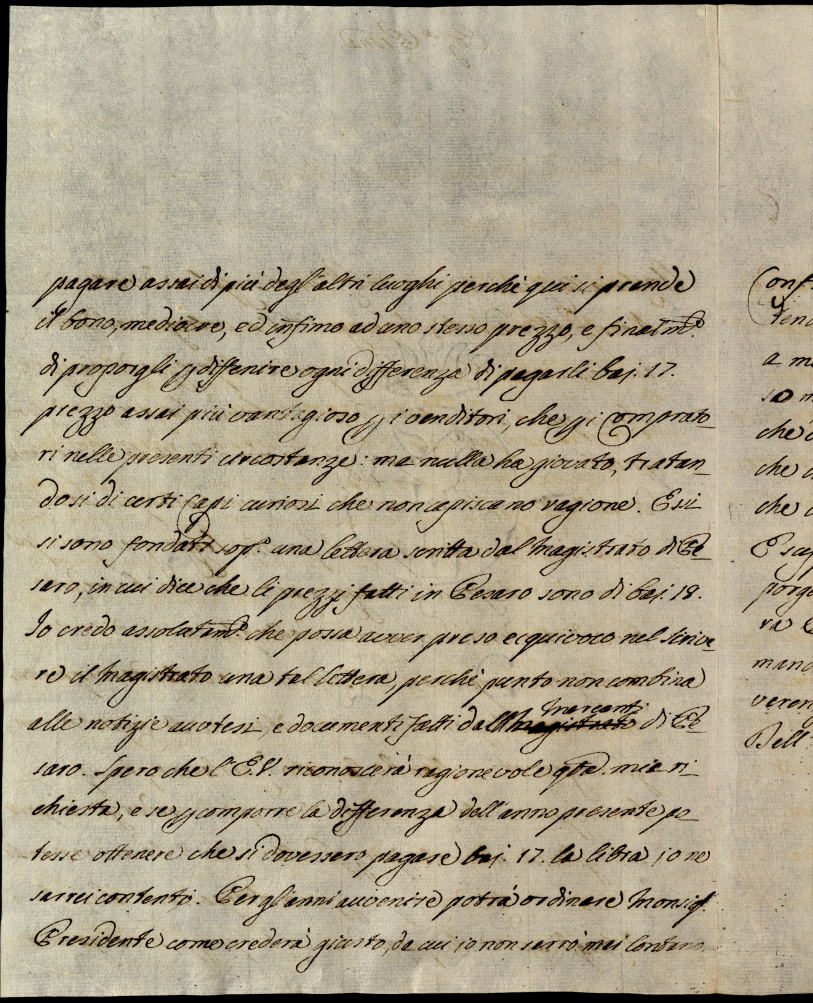 pagare assai di più degl'altri luoghi perchè qui si prende
il bono, mediocre, ed infimo ad uno stesso prezzo, e finalm.e
di proporgli p diffenire ogni differenza di pagarli baj. 17.
prezzo assai più vantagioso p i venditori, che p i Comprato
ri nelle presenti circostanze: ma nulla ha giovato, tratan-
dosi di certi Capi curiosi che non capiscano ragione. Esi
si sono fondati sop.a una lettera scritta dal Magistrato di Pe-
saro, in cui dice che li prezzj fatti in Pesaro sono di baj. 18.
Io credo assolutam.e che possa aver preso equivoco nel scrive-
re il Magistrato una tal lettera, perchè punto non combina
alle notizie auutesi, e documenti fatti dall Mercanti di Pe-
saro. Spero che l'E.V. riconoscerà ragionevole q̃ta mia ri-
chiesta, e se p comporre la differenza dell'anno presente po-
tesse ottenere che si dovessero pagare baj. 17. la libra io ne
sarrei contento. Per gl'anni auuenire potrà ordinare Monsig.
Presidente come crederà giusto, da cui io non sarrò mai lontano.
Conf
a m
so n
che
che
che
porge
ra
mand
veren
Bell